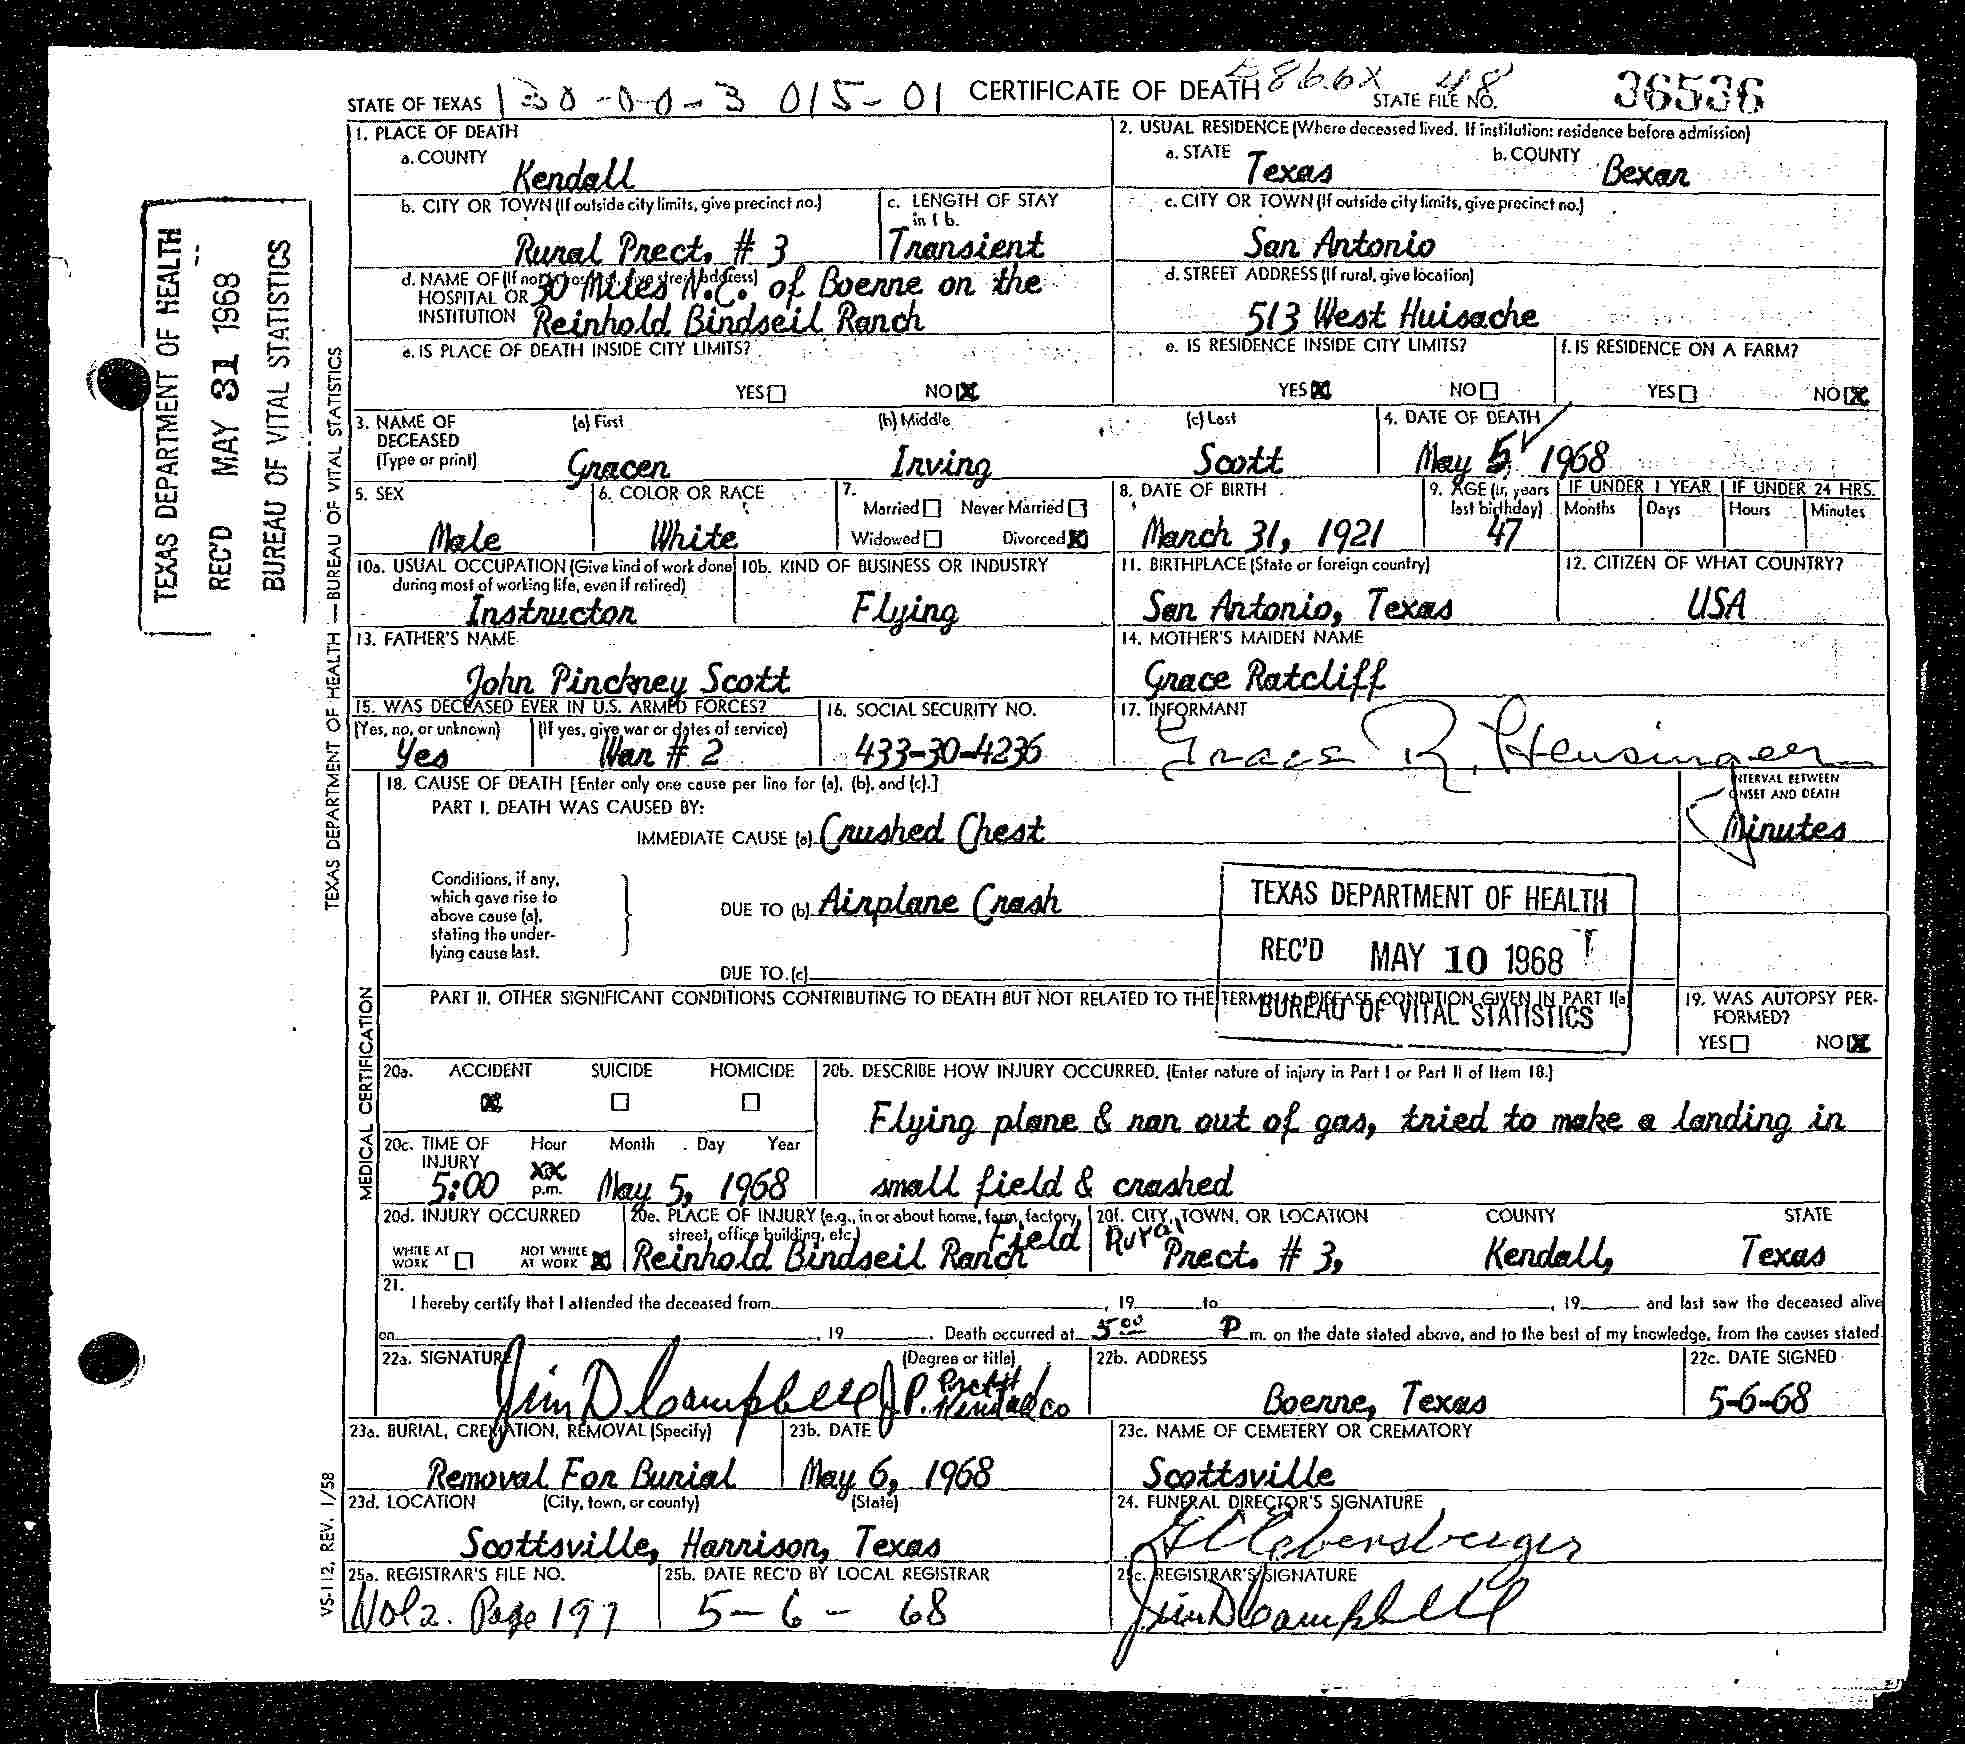 STATE OF TEXAS 130-00-3 015-01 CERTIFICATE OF DEATH 866X 48 STATE FILE NO. 36536
1. PLACE OF DEATH
a. COUNTY
Kendall
b. CITY OR TOWN (If outside city limits, give precinct no.)
Rural Prect. # 3
c. LENGTH OF STAY in 1 b.
Transient
d. NAME OF (If not in hospital, give street address)
HOSPITAL OR 30 Miles N.C. of Boerne on the
INSTITUTION Reinhold Bindseil Ranch
e. IS PLACE OF DEATH INSIDE CITY LIMITS?
YES NO X
2. USUAL RESIDENCE (Where deceased lived. If institution: residence before admission)
a. STATE Texas b. COUNTY Bexar
c. CITY OR TOWN (If outside city limits, give precinct no.)
San Antonio
d. STREET ADDRESS (If rural, give location)
513 West Huisache
e. IS RESIDENCE INSIDE CITY LIMITS?
YES X NO
f. IS RESIDENCE ON A FARM?
YES NO X
3. NAME OF DECEASED (Type or print)
(a) First (b) Middle (c) Last
Gracen Irving Scott
4. DATE OF DEATH
May 5, 1968
5. SEX
Male
6. COLOR OR RACE
White
7.
Married Never Married
Widowed Divorced X
8. DATE OF BIRTH
March 31, 1921
9. AGE (in years last birthday)
47
IF UNDER 1 YEAR IF UNDER 24 HRS.
Months Days Hours Minutes
10a. USUAL OCCUPATION (Give kind of work done during most of working life, even if retired)
Instructor
10b. KIND OF BUSINESS OR INDUSTRY
Flying
11. BIRTHPLACE (State or foreign country)
San Antonio, Texas
12. CITIZEN OF WHAT COUNTRY?
USA
13. FATHER'S NAME
John Pinckney Scott
14. MOTHER'S MAIDEN NAME
Grace Ratcliff
15. WAS DECEASED EVER IN U.S. ARMED FORCES?
(Yes, no, or unknown) (If yes, give war or dates of service)
Yes War # 2
16. SOCIAL SECURITY NO.
433-30-4236
17. INFORMANT
Grace R. Hensinger
18. CAUSE OF DEATH [Enter only one cause per line for (a), (b), and (c).]
PART I. DEATH WAS CAUSED BY:
IMMEDIATE CAUSE (a) Crushed Chest
INTERVAL BETWEEN ONSET AND DEATH
Minutes
Conditions, if any,
which gave rise to
above cause (a),
stating the under-
lying cause last.
DUE TO (b) Airplane Crash
DUE TO (c)
TEXAS DEPARTMENT OF HEALTH
REC'D MAY 10 1968
BUREAU OF VITAL STATISTICS
PART II. OTHER SIGNIFICANT CONDITIONS CONTRIBUTING TO DEATH BUT NOT RELATED TO THE TERMINAL DISEASE CONDITION GIVEN IN PART I(a)
19. WAS AUTOPSY PER-
FORMED?
YES NO X
20a. ACCIDENT SUICIDE HOMICIDE
X
20b. DESCRIBE HOW INJURY OCCURRED. (Enter nature of injury in Part I or Part II of Item 18.)
Flying plane & ran out of gas, tried to make a landing in
small field & crashed
20c. TIME OF INJURY Hour Month Day Year
5:00 xx p.m. May 5, 1968
20d. INJURY OCCURRED
WHILE AT WORK NOT WHILE AT WORK X
20e. PLACE OF INJURY (e.g., in or about home, farm, factory, street, office building, etc.)
Reinhold Bindseil Ranch Field
20f. CITY, TOWN, OR LOCATION COUNTY STATE
Rural Prect. # 3, Kendall, Texas
21.
I hereby certify that I attended the deceased from , 19 to , 19 and last saw the deceased alive
on , 19 . Death occurred at 5:00 P m. on the date stated above, and to the best of my knowledge, from the causes stated.
22a. SIGNATURE (Degree or title)
Jim D Campbell J.P. Prect # 1 Kendall Co
22b. ADDRESS
Boerne, Texas
22c. DATE SIGNED
5-6-68
23a. BURIAL, CREMATION, REMOVAL (Specify)
Removal For Burial
23b. DATE
May 6, 1968
23c. NAME OF CEMETERY OR CREMATORY
Scottsville
23d. LOCATION (City, town, or county) (State)
Scottsville, Harrison, Texas
24. FUNERAL DIRECTOR'S SIGNATURE
25a. REGISTRAR'S FILE NO.
Vol 2. Page 197
25b. DATE REC'D BY LOCAL REGISTRAR
5-6-68
25c. REGISTRAR'S SIGNATURE
Jim D Campbell
TEXAS DEPARTMENT OF HEALTH
REC'D MAY 31 1968
BUREAU OF VITAL STATISTICS
TEXAS DEPARTMENT OF HEALTH — BUREAU OF VITAL STATISTICS
MEDICAL CERTIFICATION
VS-112, REV. 1/58